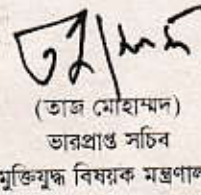 (তাজ মোহাম্মদ)
ভারপ্রাপ্ত সচিব
মুক্তিযুদ্ধ বিষয়ক মন্ত্রণাল